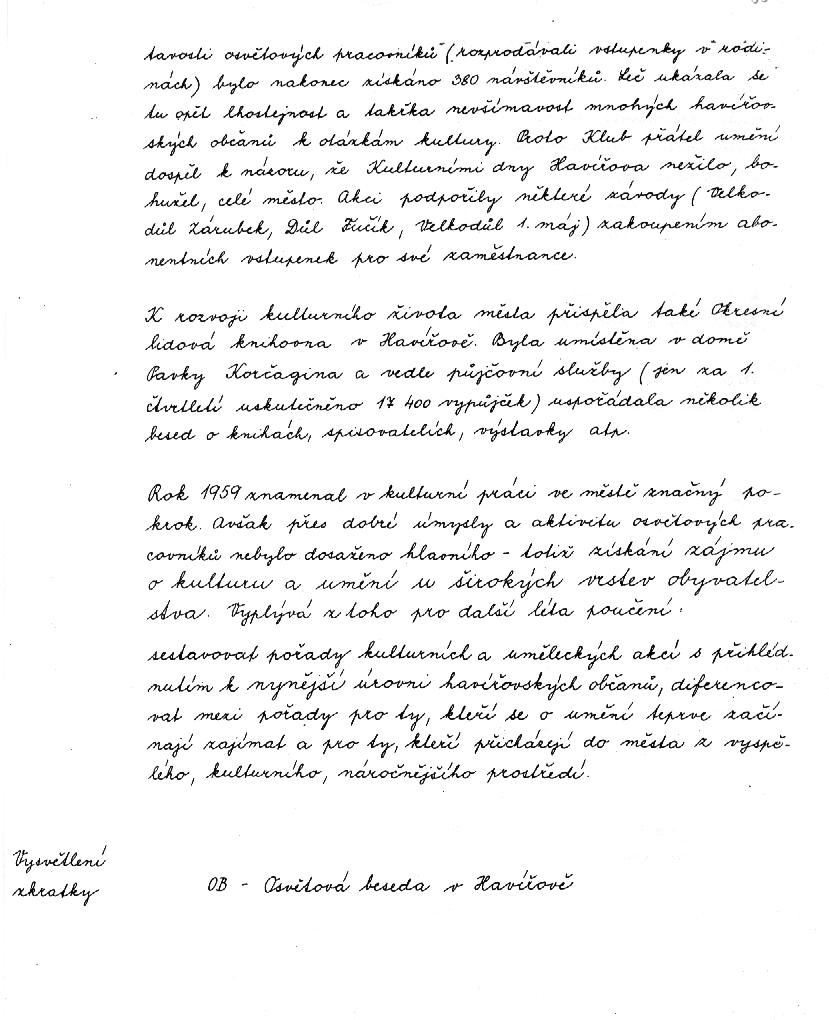 tavosti osvětových pracovníků (rozprodávali vstupenky v rodi-
nách) bylo nakonec získáno 380 návštěvníků. Leč ukázala se
tu opět lhostejnost a takřka nevšímavost mnohých havířov-
ských občanů k otázkám kultury. Proto Klub přátel umění
dospěl k názoru, že Kulturními dny Havířova nežilo, bo-
hužel, celé město. Akci podpořily některé závody (Velko-
důl Zárubek, Důl Fučík, Velkodůl 1. máj) zakoupením abo-
nentních vstupenek pro své zaměstnance.
K rozvoji kulturního života města přispěla také Okresní
lidová knihovna v Havířově. Byla umístěna v domě
Pavky Korčagina a vedle půjčovní služby (jen za 1.
čtvrtletí uskutečněno 17 400 vypůjček) uspořádala několik
besed o knihách, spisovatelích, výstavky atp.
Rok 1959 znamenal v kulturní práci ve městě značný po-
krok. Avšak přes dobré úmysly a aktivitu osvětových pra-
covníků nebylo dosaženo hlavního - totiž získání zájmu
o kulturu a umění u širokých vrstev obyvatel-
stva. Vyplývá z toho pro další léta poučení:
sestavovat pořady kulturních a uměleckých akcí s přihléd-
nutím k nynější úrovni havířovských občanů, diferenco-
vat mezi pořady pro ty, kteří se o umění teprve začí-
nají zajímat a pro ty, kteří přicházejí do města z vyspě-
lého, kulturního, náročnějšího prostředí.
Vysvětlení
zkratky
OB - Osvětová beseda v Havířově